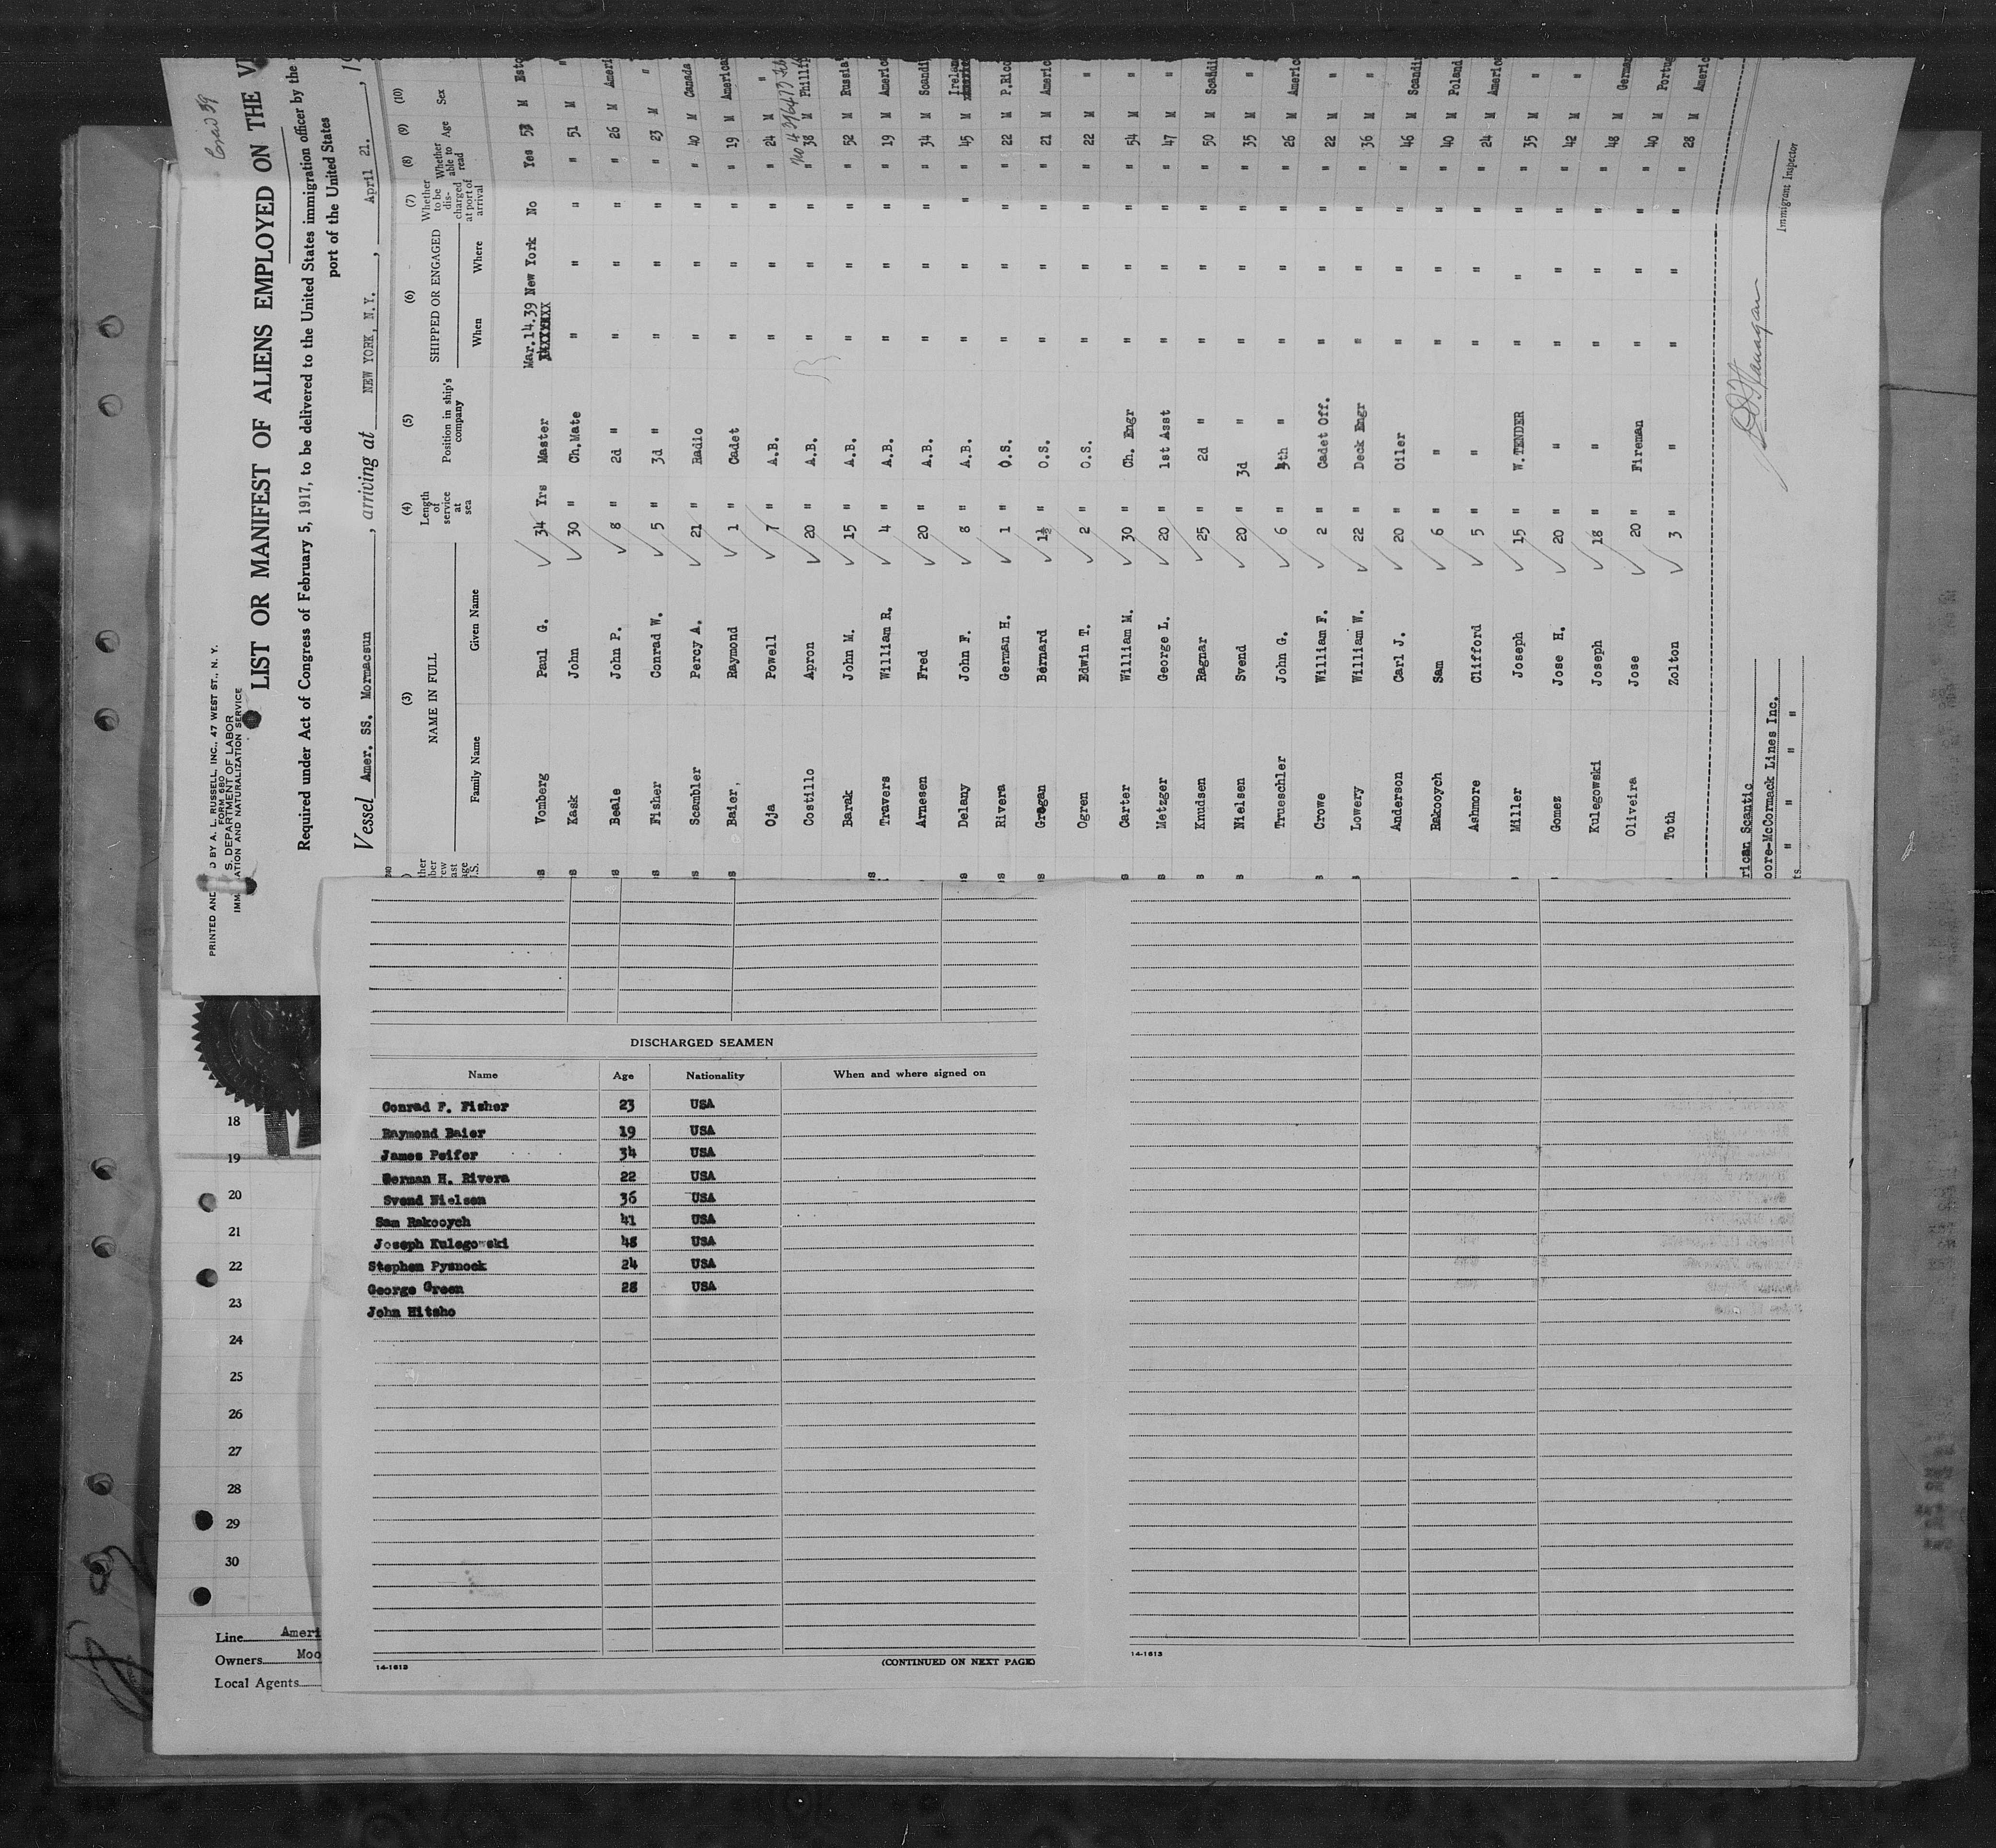 PRINTED AND BY A. L. RUSSELL, INC., 47 WEST ST., N. Y.
FORM 680
S. DEPARTMENT OF LABOR
IMM ATION AND NATURALIZATION SERVICE
LIST OR MANIFEST OF ALIENS EMPLOYED ON THE
Required under Act of Congress of February 5, 1917, to be delivered to the United States immigration officer by the
port of the United States
Vessel Amer. SS. Mormacsun, arriving at NEW YORK, N.Y., April 21., 19
(3) (4) (5) (6) (7) (8) (9) (10)
NAME IN FULL Length of service at sea Position in ship's company SHIPPED OR ENGAGED Whether to be discharged at port of arrival Whether able to read Age Sex
Family Name Given Name When Where
Vomberg Paul G. 34 Yrs Master Mar.14.39 New York No Yes 53 M Esto
Kask John 30 " Ch.Mate " " " " 51 M "
Beale John P. 8 " 2d " " " " " 26 M Ameri
Fisher Conrad W. 5 " 3d " " " " " 23 M "
Scambler Percy A. 21 " Radio " " " " 40 M Canada
Baier, Raymond 1 " Cadet " " " " 19 M America
Oja Powell 7 " A.B. " " " " 24 M "
Costillo Apron 20 " A.B. " " " " 38 M Phillip
Barak John M. 15 " A.B. " " " " 52 M Russia
Travers William R. 4 " A.B. " " " " 19 M America
Arnesen Fred 20 " A.B. " " " " 34 M Scandi
Delany John F. 8 " A.B. " " " " 45 M Ireland
Rivera German H. 1 " O.S. " " " " 22 M P.Rico
Grogan Bernard 1½ " O.S. " " " " 21 M Americ
Ogren Edwin T. 2 " O.S. " " " " 22 M "
Carter William M. 30 " Ch. Engr " " " " 54 M "
Metzger George L. 20 " 1st Asst " " " " 47 M "
Knudsen Ragnar 25 " 2d " " " " " 50 M Scandi
Nielsen Svend 20 " 3d " " " " " 35 M "
Trueschler John G. 6 " 4th " " " " " 26 M Americ
Crowe William F. 2 " Cadet Off. " " " " 22 M "
Lowery William W. 22 " Deck Engr " " " " 36 M "
Anderson Carl J. 20 " Oiler " " " " 46 M Scandi
Rakooych Sam 6 " " " " " " 40 M Poland
Ashmore Clifford 5 " " " " " " 24 M America
Miller Joseph 15 " W.TENDER " " " " 35 M "
Gomez Jose H. 20 " " " " " " 42 M "
Kulegowski Joseph 18 " " " " " " 48 M German
Oliveira Jose 20 " Fireman " " " " 40 M Portug
Toth Zolton 3 " " " " " " 28 M Americ
rican Scantic
oore-McCormack Lines Inc.
" " " "
Immigrant Inspector
DISCHARGED SEAMEN
Name Age Nationality When and where signed on
Conrad F. Fisher 23 USA
Raymond Baier 19 USA
James Peifer 34 USA
German H. Rivera 22 USA
Svend Nielsen 36 USA
Sam Rakooych 41 USA
Joseph Kulegowski 48 USA
Stephen Pysnock 24 USA
George Green 28 USA
John Hitsho
14-1613 (CONTINUED ON NEXT PAGE)
14-1613
18
19
20
21
22
23
24
25
26
27
28
29
30
Line Ameri
Owners Moo
Local Agents